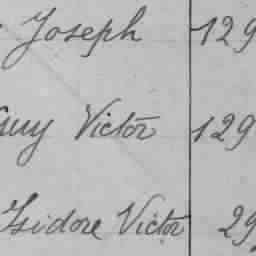 Joseph 129
Guy Victor 129
Isidore Victor 29